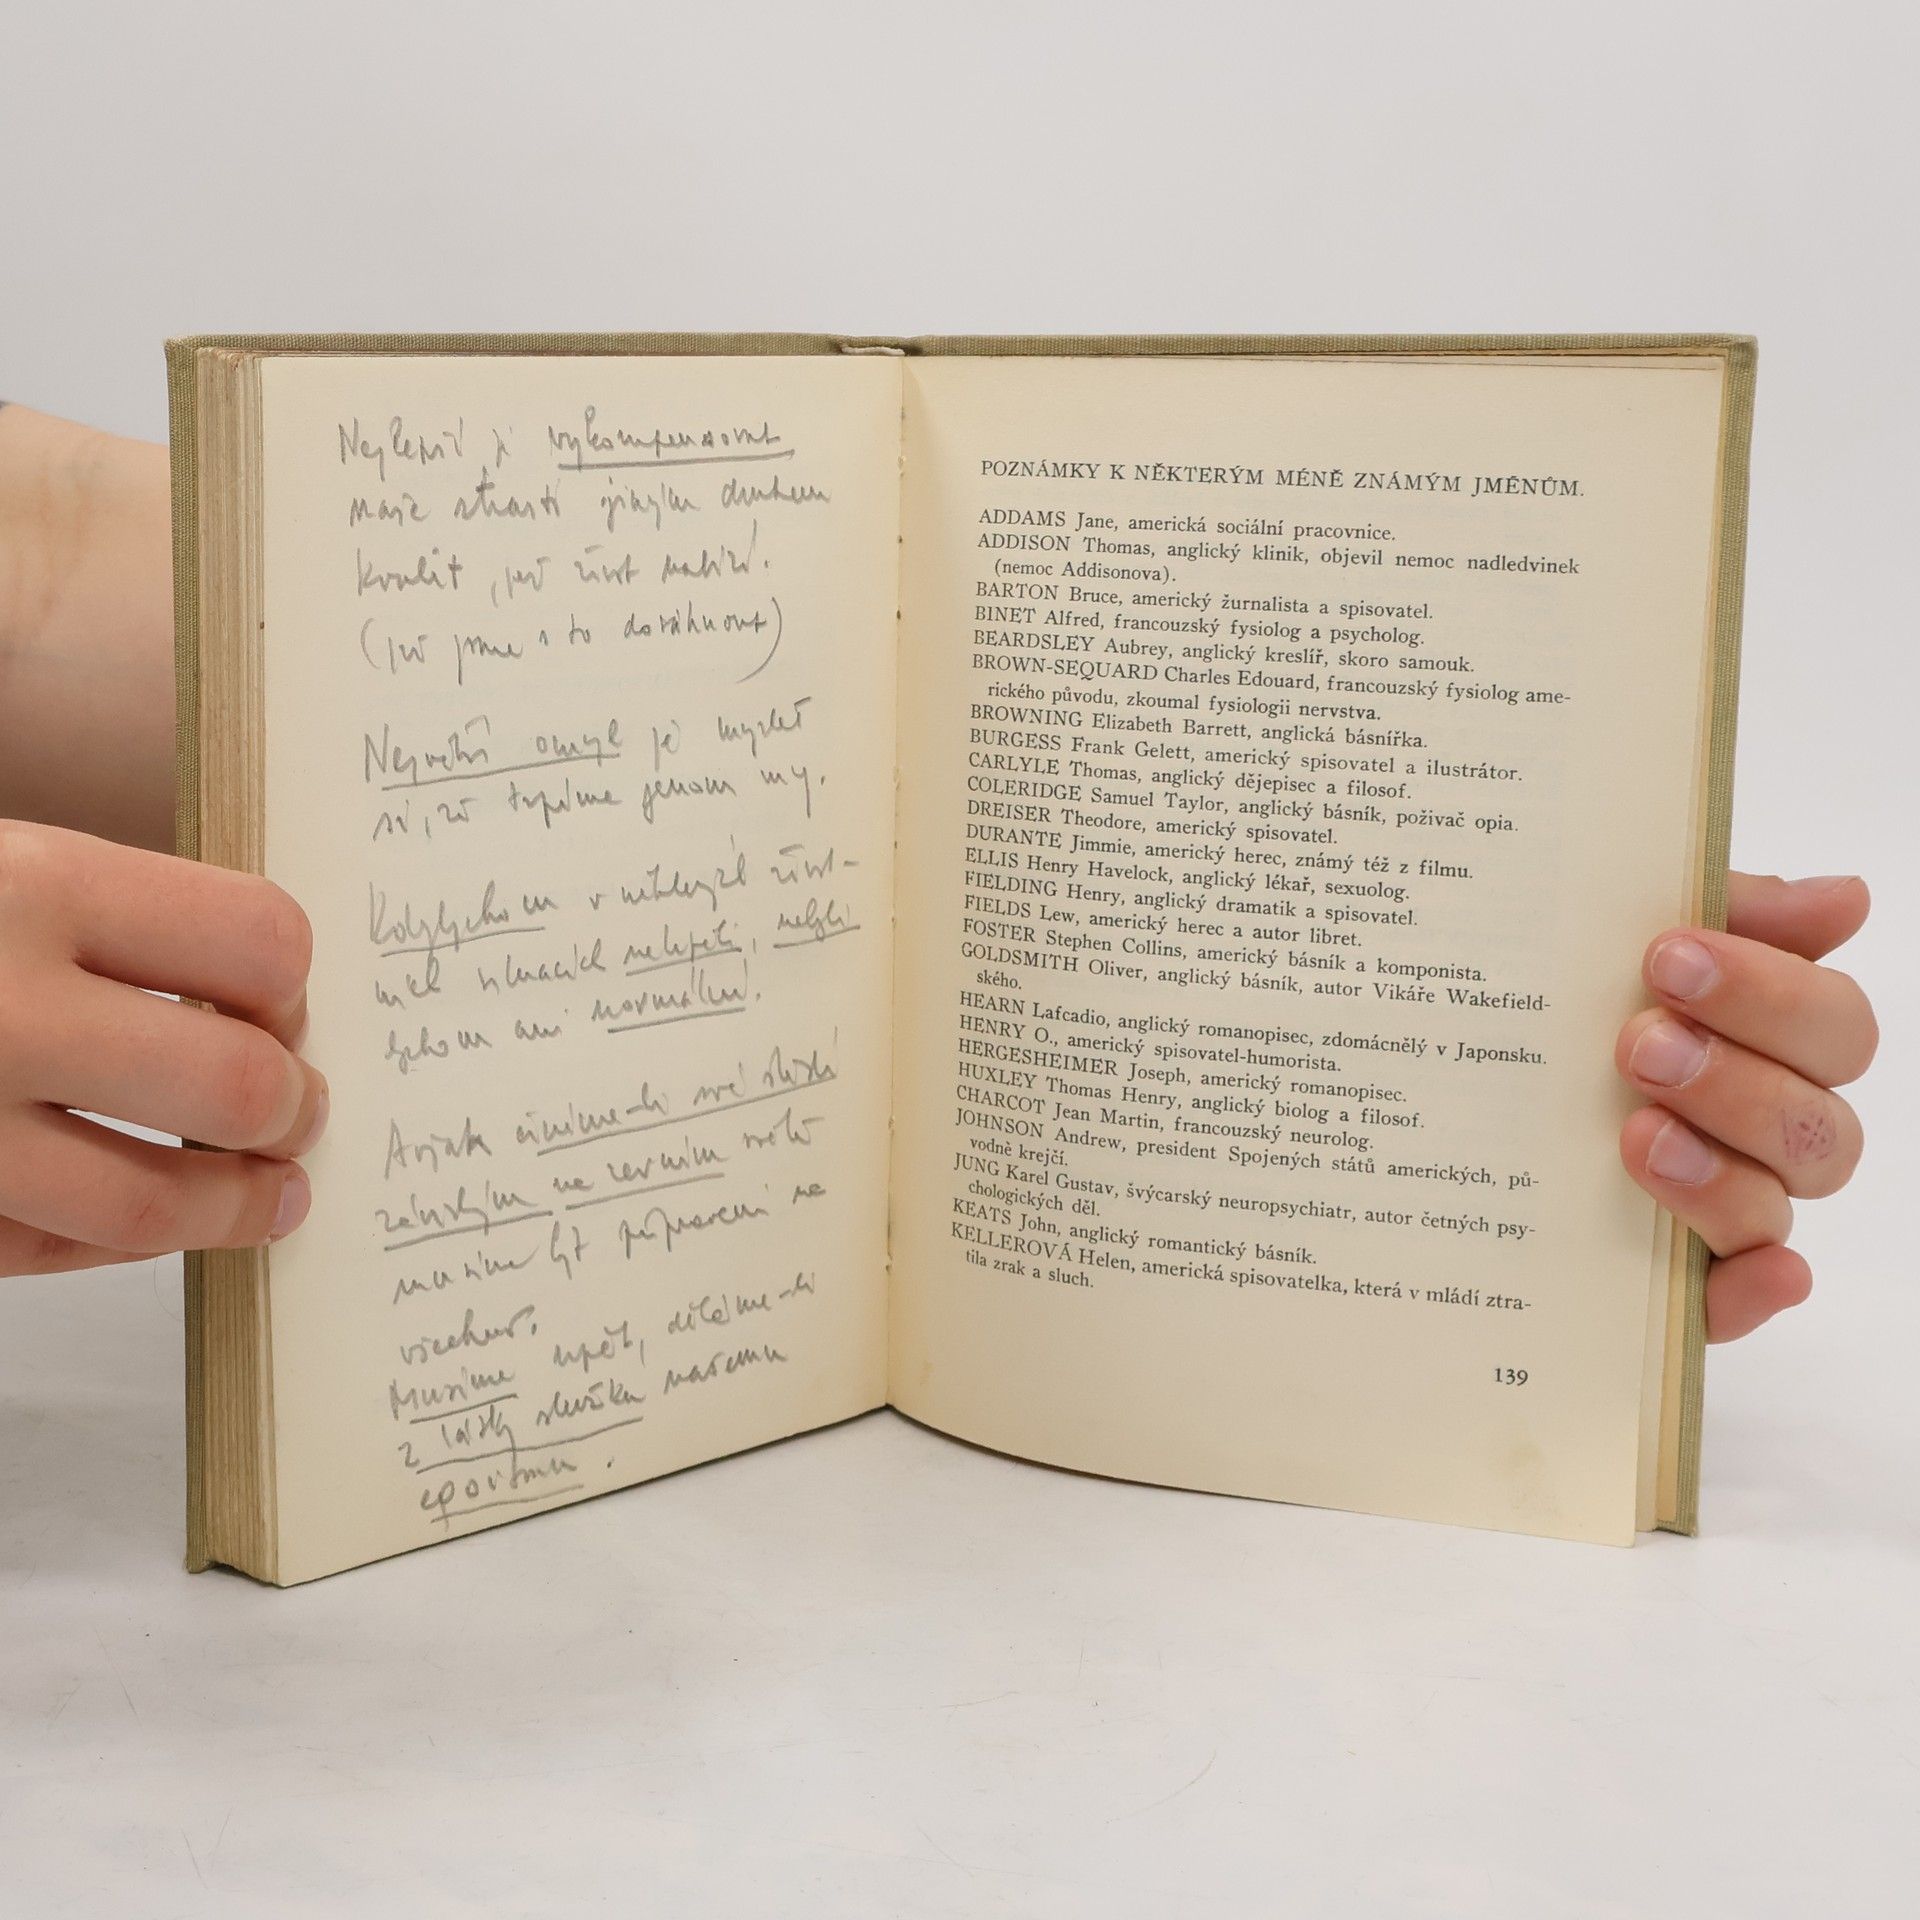 Nejlepší je vykompensovat
naše strasti jiným druhem
kvalit, jež život nabízí.
(jež jsme s to dosáhnout)
Největší omyl je myslet
si, že trpíme jenom my.
Kdybychom v některých život-
ních situacích netrpěli, nebyli
bychom ani normální.
Avšak činíme-li své štěstí
závislým na zevním světě
musíme být připraveni na
všechno.
Musíme trpět, děláme-li
z lásky služku našemu
egoismu.
POZNÁMKY K NĚKTERÝM MÉNĚ ZNÁMÝM JMÉNŮM.
ADDAMS Jane, americká sociální pracovnice.
ADDISON Thomas, anglický klinik, objevil nemoc nadledvinek
(nemoc Addisonova).
BARTON Bruce, americký žurnalista a spisovatel.
BINET Alfred, francouzský fysiolog a psycholog.
BEARDSLEY Aubrey, anglický kreslíř, skoro samouk.
BROWN-SEQUARD Charles Edouard, francouzský fysiolog ame-
rického původu, zkoumal fysiologii nervstva.
BROWNING Elizabeth Barrett, anglická básnířka.
BURGESS Frank Gelett, americký spisovatel a ilustrátor.
CARLYLE Thomas, anglický dějepisec a filosof.
COLERIDGE Samuel Taylor, anglický básník, poživač opia.
DREISER Theodore, americký spisovatel.
DURANTE Jimmie, americký herec, známý též z filmu.
ELLIS Henry Havelock, anglický lékař, sexuolog.
FIELDING Henry, anglický dramatik a spisovatel.
FIELDS Lew, americký herec a autor libret.
FOSTER Stephen Collins, americký básník a komponista.
GOLDSMITH Oliver, anglický básník, autor Vikáře Wakefield-
ského.
HEARN Lafcadio, anglický romanopisec, zdomácnělý v Japonsku.
HENRY O., americký spisovatel-humorista.
HERGESHEIMER Joseph, americký romanopisec.
HUXLEY Thomas Henry, anglický biolog a filosof.
CHARCOT Jean Martin, francouzský neurolog.
JOHNSON Andrew, president Spojených států amerických, pů-
vodně krejčí.
JUNG Karel Gustav, švýcarský neuropsychiatr, autor četných psy-
chologických děl.
KEATS John, anglický romantický básník.
KELLEROVÁ Helen, americká spisovatelka, která v mládí ztra-
tila zrak a sluch.
139